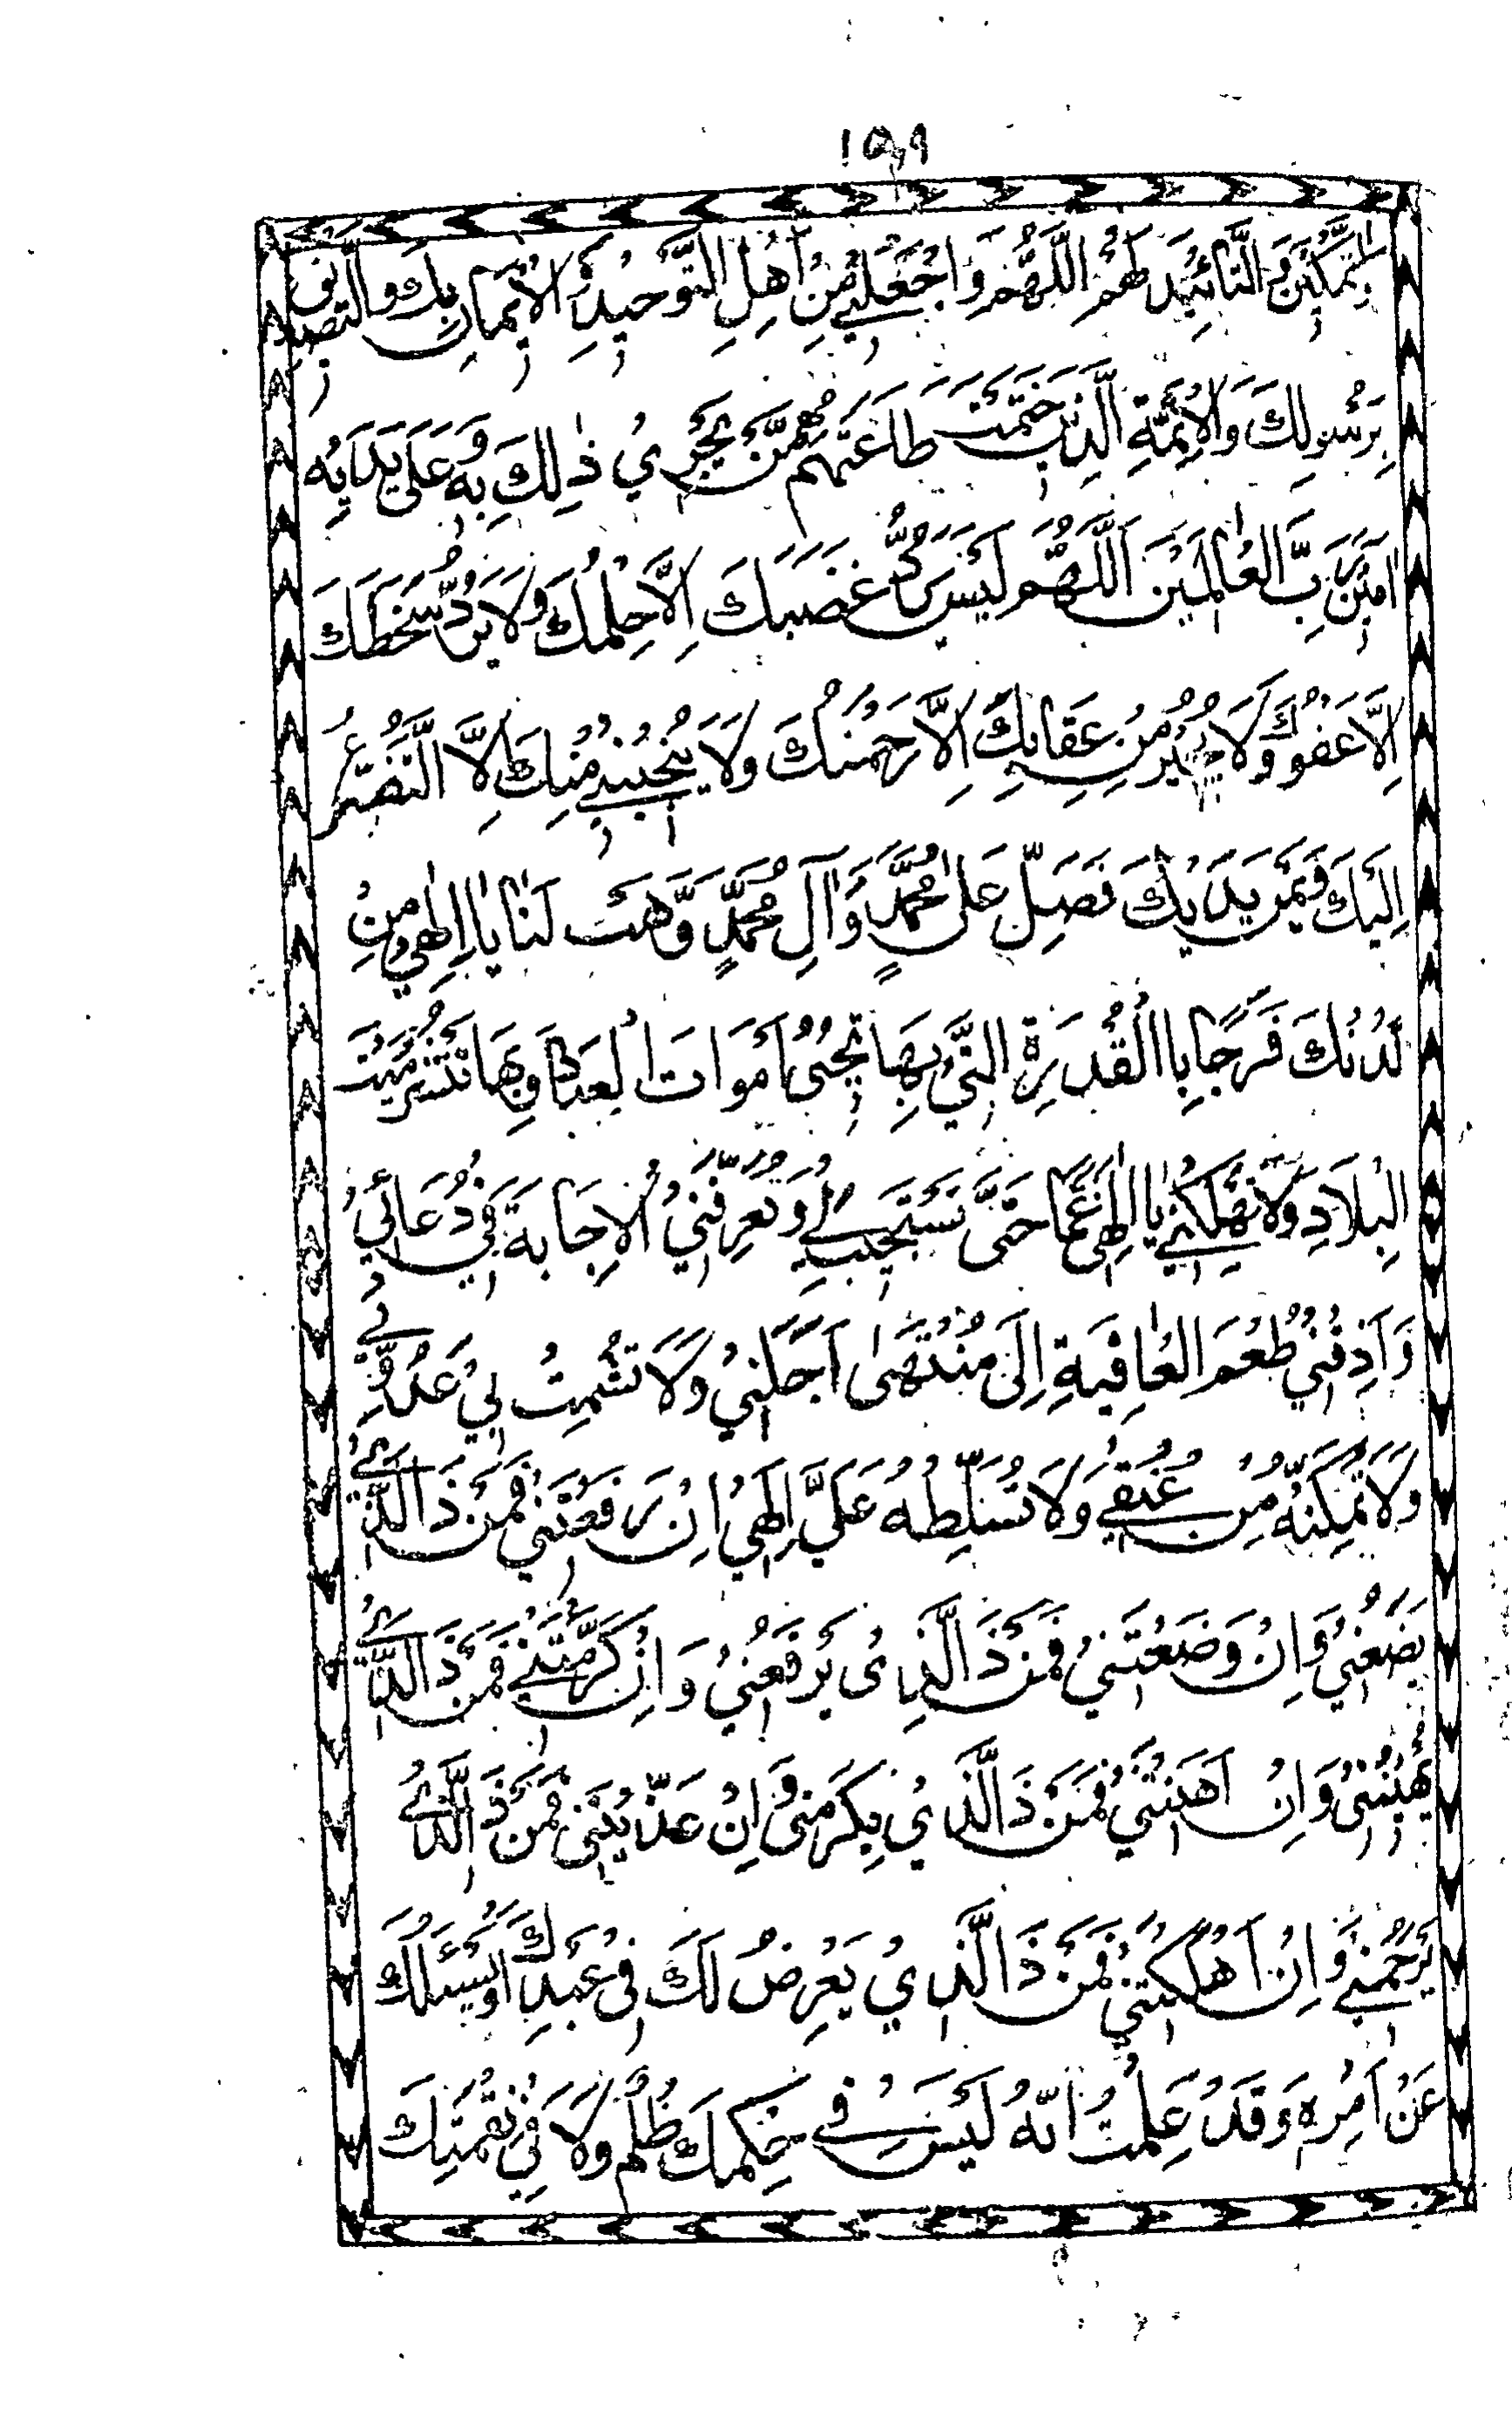 ١٥٩
التَّمْكِيْنَ وَ التَّائِيْدَ لَهُمْ اَللّٰهُمَّ وَ اجْعَلْنِيْ مِنْ اَهْلِ التَّوْحِيْدِ وَ الْاِيْمَانِ بِكَ وَ التَّصْدِيْقِ
بِرَسُوْلِكَ وَ الْاَئِمَّةِ الَّذِيْنَ حَتَمْتَ طَاعَتَهُمْ مِمَّنْ يَجْرِيْ ذٰلِكَ بِهٖ وَ عَلٰى يَدَايْهِ
اٰمِيْنَ رَبَّ الْعٰالَمِيْنَ اَللّٰهُمَّ لَيْسَ يَرُدُّ غَضَبَكَ اِلَّا حِلْمُكَ وَ لَا يَرُدُّ سَخَطَكَ
اِلَّا عَفْوُكَ وَ لَا يُجِيْرُ مِنْ عِقَابِكَ اِلَّا رَحْمَتُكَ وَ لَا يُنْجِيْنِيْ مِنْكَ اِلَّا التَّضَرُّعُ
اِلَيْكَ وَ بَيْنَ يَدَيْكَ فَصَلِّ عَلٰى مُحَمَّدٍ وَّ اٰلِ مُحَمَّدٍ وَّ هَبْ لَنَا يَا اِلٰهِيْ مِنْ
لَدُنْكَ فَرَجًا بِا الْقُدْرَةِ الَّتِيْ بِهَا تُحْيِيْ اَمْوَاتَ الْعِبَادِ وَ بِهَا تَنْشُرُ مَيْتَ
الْبِلَادِ وَ لَا تُهْلِكْنِيْ يَا اِلٰهِيْ غَمًّا حَتّٰى تَسْتَجِيْبَ لِيْ وَ تُعَرِّفَنِيْ الْاِجَابَةَ فِيْ دُعَائِيْ
وَ اَذِقْنِيْ طَعْمَ الْعٰافِيَةِ اِلٰى مُنْتَهٰى اَجَلِيْ وَ لَا تُشْمِتْ بِيْ عَدُوِّيْ
وَ لَا تُمَكِّنْهُ مِنْ عُنُقِيْ وَ لَا تُسَلِّطْهُ عَلَيَّ اِلٰهِيْ اِنْ رَفَعْتَنِيْ فَمَنْ ذَا الَّذِيْ
يَضَعُنِيْ وَ اِنْ وَضَعْتَنِيْ فَمَنْ ذَا الَّذِيْ يَرْفَعُنِيْ وَ اِنْ كَرَّمْتَنِيْ فَمَنْ ذَا الَّذِيْ
يُهِيْنُنِيْ وَ اِنْ اَهَنْتَنِيْ فَمَنْ ذَا الَّذِيْ يُكْرِمُنِيْ وَ اِنْ عَذَّبْتَنِيْ فَمَنْ ذَا الَّذِيْ
يَرْحَمُنِيْ وَ اِنْ اَهْلَكْتَنِيْ فَمَنْ ذَا الَّذِيْ يَعْرِضُ لَكَ فِيْ عَبْدِكَ اَوْ يَسْئَلُكَ
عَنْ اَمْرِهٖ وَ قَدْ عَلِمْتُ اَنَّهُ لَيْسَ فِيْ حُكْمِكَ ظُلْمٌ وَ لَا فِيْ نِقْمَتِكَ